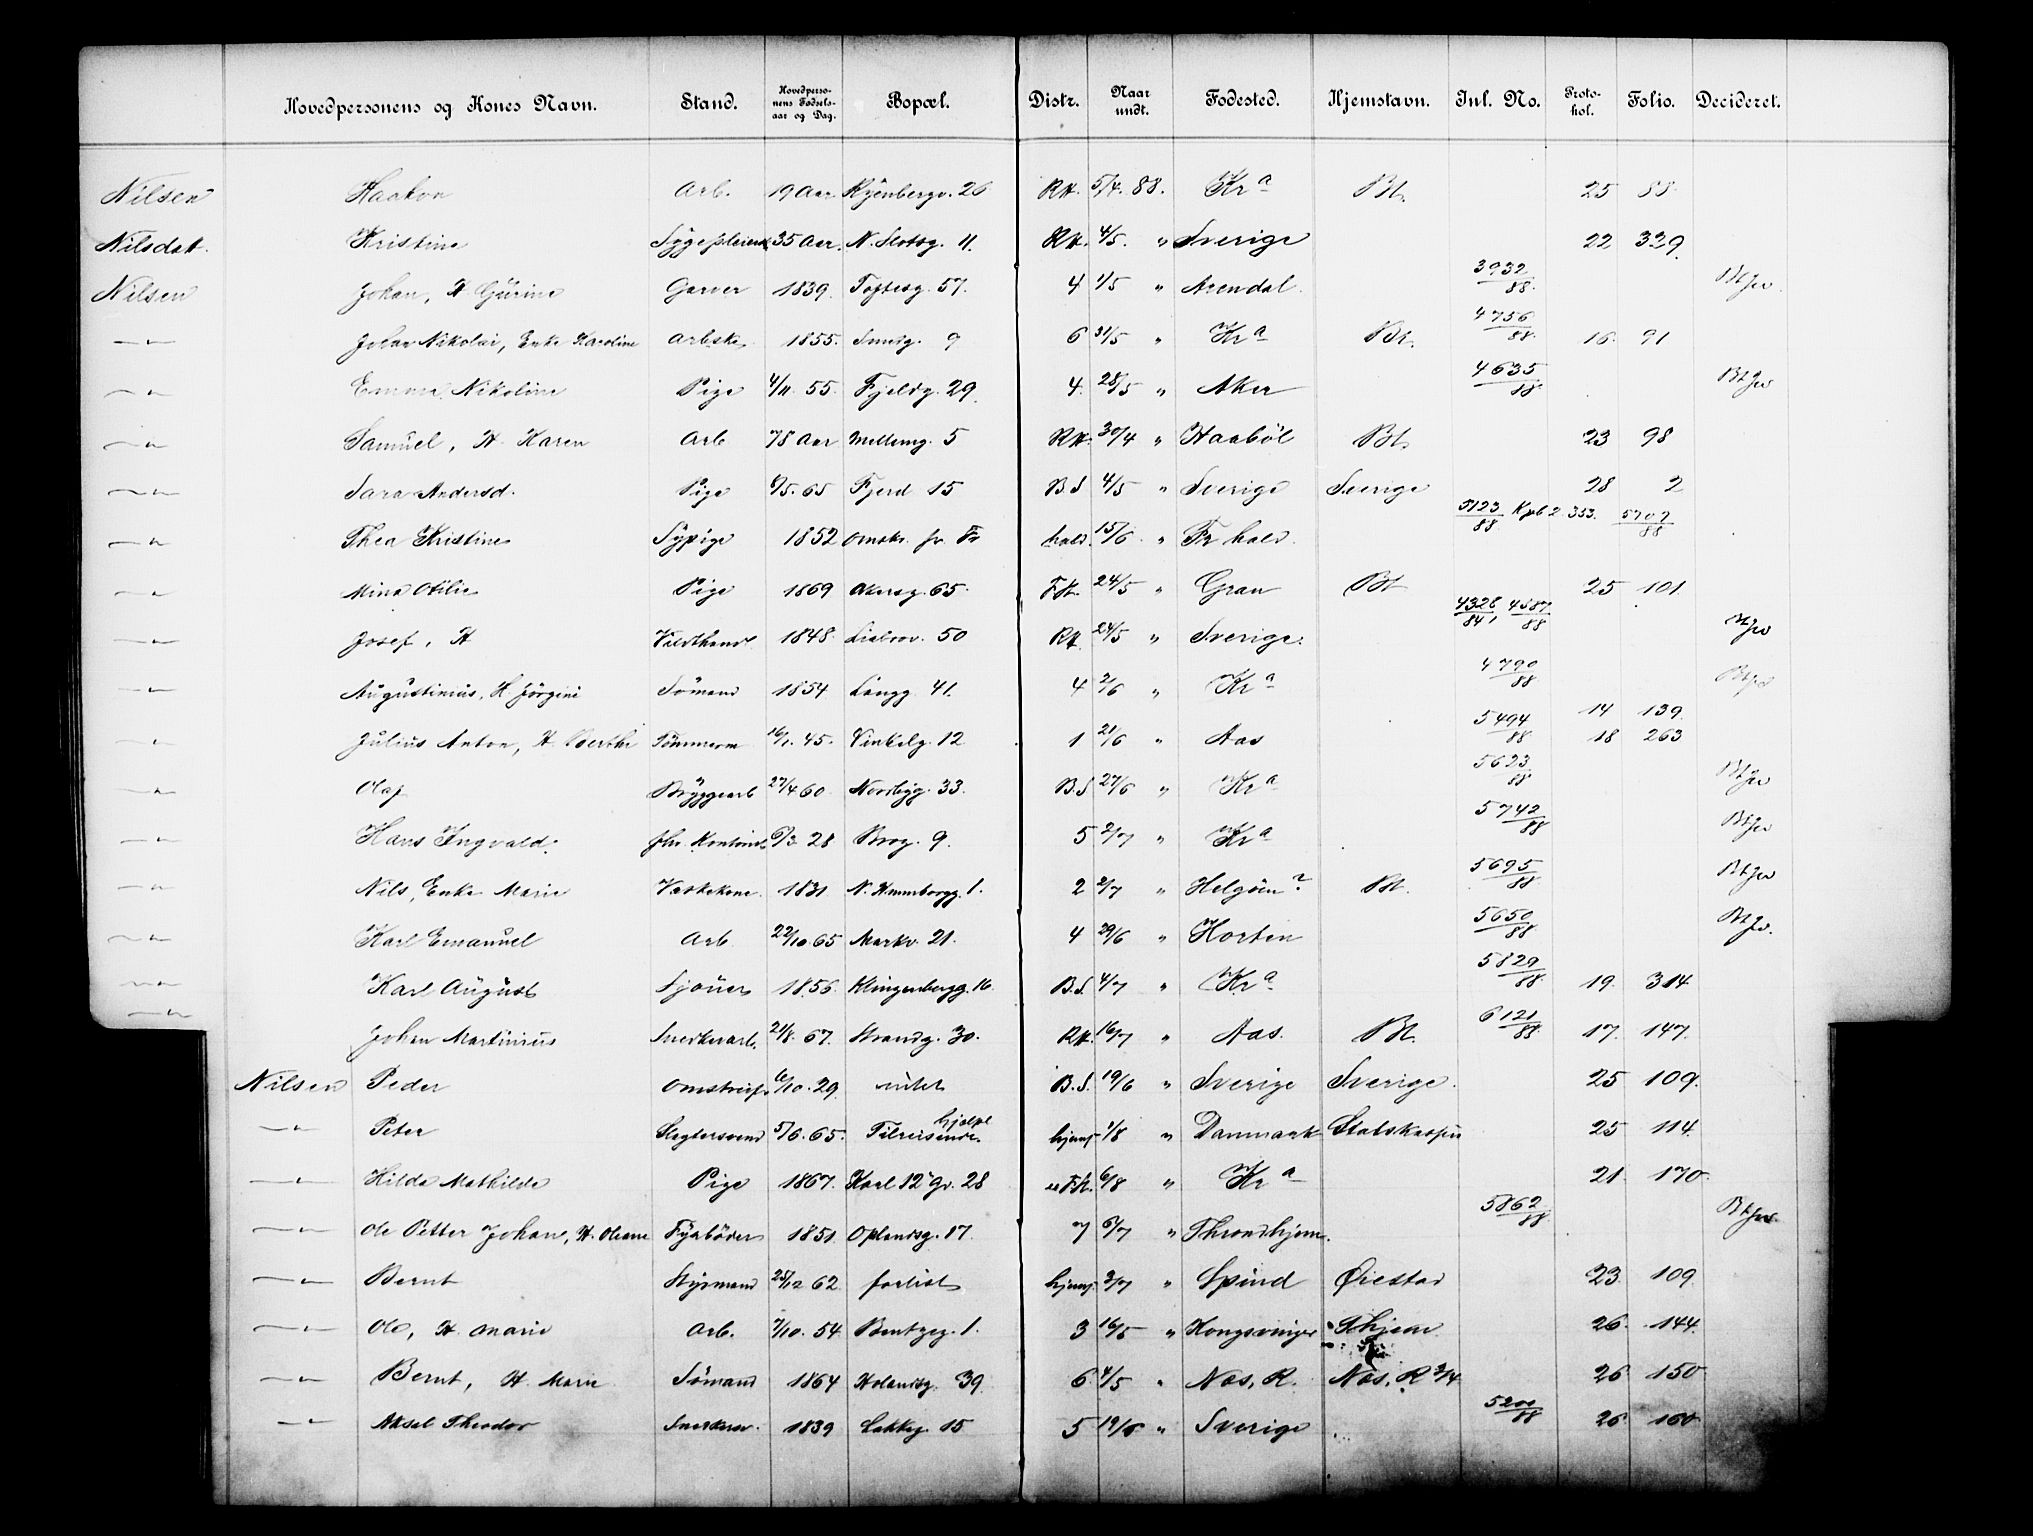 Hovedpersonens og Kones Navn. Stand. Hovedpersonens Fødselsaar og Dag. Bopæl. Distr. Naar undt. Fødested. Hjemstavn. Inl. No. Protokol. Folio. Decideret.
Nilsen Haakon Arb. 19 Aar 26 RK. 5/4. 88. Kr a Bt. 25 88
Nilsdatt. Kristine 35 Aar. N. Slotsg. 11. RK. 4/5. " Sverige 22 339
Nilsen Johan, H Gurine Garver 1839. Toftesg. 57. 4 1/5 " Arendal. 3932/88.
—"— Johan Nikolai, Enke Karoline Arbske 1855. Smedg. 9 6 31/5 " Kr a Bt. 4756/88. 16. 91
—"— Emma Nikoline Pige 4/11. 55. Fjeldg. 29. 4. 28/5 " Aker 4635/88.
—"— Samuel, H. Karen Arb 78 Aar Mellemg. 5 RK. 30/4 " Haabøl Bt. 23 98
—"— Sara Andersd. Pige 65 Fjerd 15 B S 4/5 " Sverige Sverige 28 2
—"— Thea Kristine Sypige 1852 Omstr. fr. Fr hald. 15/6. " Fr hald. 5123/88 353. 5707/88
—"— Mina Otilie Pige 1869 Akersg. 65. FK. 24/5 " Gran Bt 25 101.
—"— Josef, H Vildthandl 1848. 50 RK. 24/5 " Sverige. 4328/84, 4587/88
—"— Augustinius, H. Jørgine Sømand 1854 Langg. 41. 4 2/6 " Kr a 4790/88
—"— Julius Anton, H. Berthe Tømmerm 16/1. 45. Vinkelg. 12 1 21/6 " Aas 5494/88 14 139. 18 263
—"— Olaf Bryggearb 27/4 60. Nordbyg. 33. B.S 27/6 " Kr a 5623/88
—"— Hans Ingvald. 28 Brog. 9. 5 2/7 " Kr a 5742/88
—"— Nils, Enke Marie Vaskekone. 1831. 1. 2 2/7 " Helgøen? Bt. 5695/88.
—"— Karl Emanuel Arb 22/10. 65 Markv. 21. 4 29/6 " Horten 5650/88
—"— Karl August Sjouer 1856. Klingenbergg. 16. B.S. 4/7 " Kr a 5829/88. 19. 314.
—"— Johan Martinius Snedkerarb. 21/8. 67. Strandg. 30. RK. 16/7 " Aas. Bt. 6121/88. 17. 147.
Nilsen Peder 10. 29. B.S. 19/6 " Sverige Sverige. 25 109.
—"— Peter Slagtersvend 5/6. 65. Tilreisende. hjælpl 1/8 " Danmark Statskassen 25 114.
—"— Hilda Mathilde Pige 1867. Karl 12 gr. 28 FK. 6/8 " Kr a 21. 170.
—"— Ole Petter Johan, H. Oleane Fyrbøder 1851. Oplandsg. 17. 7 6/7 " Throndhjem. 5862/88.
—"— Bernt Styrmand 25/12 62. forlist 2/7 " Spind Øiestad 23. 109.
—"— Ole, H. Marie Arb. 7/10. 54. Bentzeg. 1. 3 16/5 " Kongsvinger Thjem. 26. 144.
—"— Bernt, H. Marie Sømand 1864 Holandsg. 39. 6. 4/5 " Næs, R. Næs, R 26. 150.
—"— Aksel Theodor Snedkersv. 1839 Lakkeg. 15 5 19/6 " Sverige 26. 160.